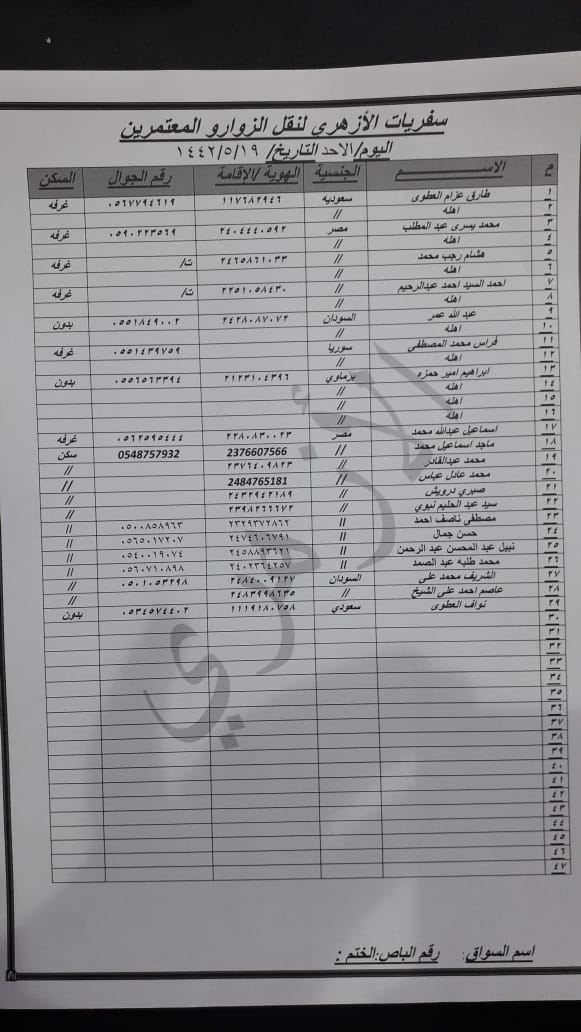 سفريات الأزهري لنقل الزوار و المعتمرين
اليوم/الاحد التاريخ/ ١٤٤٢/٥/١٩
م الاســـم الجنسية الهوية /الإقامة رقم الجوال السكن
١ طارق عزام العطوى سعوديه ١١٧٦٨٢٩٤٦ ٠٥٦٧٧٩٤٦١٩ غرفه
٢ اهله //
٣ محمد يسرى عبد المطلب مصر ٢٤٠٤٤٤٠٥٩٢ ٠٥٩٠٢٢٣٥٦٩ غرفه
٤ اهله //
٥ هشام رجب محمد // ٢٤٦٥٨٦١٠٣٣ ت/ غرفه
٦ اهله //
٧ احمد السيد احمد عبدالرحيم // ٢٢٥١٠٥٨٤٣٠ ت/ غرفه
٨ اهله //
٩ عبد الله عمر السودان ٢٤٢٨٠٨٧٠٧٢ ٠٥٥١٨٤٩٠٠٢ بدون
١٠ اهله //
١١ فراس محمد المصطفى سوريا ٠٥٥١٤٣٩٧٥٩ غرفه
١٢ اهله //
١٣ ابراهيم امير حمزه برماوي ٢١٢٣١٠٤٣٩٦ ٠٥٥٦٥٦٣٣٩٤ بدون
١٤ اهله //
١٥ اهله //
١٦ اهله //
١٧ اسماعيل عبدالله محمد مصر ٢٢٨٠٨٣٠٠٢٣ ٠٥٦٢٥٩٥٤٤٤ غرفه
١٨ ماجد اسماعيل محمد // 2376607566 0548757932 سكن
١٩ محمد عبدالقادر // ٢٣٧٦٤٠٩٨٢٣ //
٢٠ محمد عادل عباس // 2484765181 //
٢١ صبري درويش // ٢٤٣٢٩٤٢١٨٩ //
٢٢ سيد عبد الحليم نبوي // ٢٣٩٨٢٦٦٦٧٢ //
٢٣ مصطفى ناصف احمد // ٢٣٢٩٣٧٢٨٦٢ ٠٥٠٠٨٥٨٩٦٣ //
٢٤ حسن جمال // ٢٤٧٤٦٠٦٧٩١ ٠٥٦٥٠١٧٢٠٧ //
٢٥ نبيل عبد المحسن عبد الرحمن // ٢٤٥٨٨٩٣٦٢١ ٠٥٤٠٠١٩٠٧٤ //
٢٦ محمد طلبه عبد الصمد // ٢٤٠٢٣٦٤٢٥٧ ٠٥٦٠٧١٠٨٩٨ //
٢٧ الشريف محمد على السودان ٢٤٨٤٠٠٩١٢٧ ٠٥٠١٠٥٣٢٩٨ //
٢٨ عاصم احمد على الشيخ // ٢٤٨٣٩٩٨٦٣٥ //
٢٩ نواف العطوى سعودي ١١١٩١٨٠٧٥٨ ٠٥٣٤٥٧٤٤٠٢ بدون
٣٠
٣١
٣٢
٣٣
٣٤
٣٥
٣٦
٣٧
٣٨
٣٩
٤٠
٤١
٤٢
٤٣
٤٤
٤٥
٤٦
٤٧
الأزهري
اسم السواق: رقم الباص: الختم :